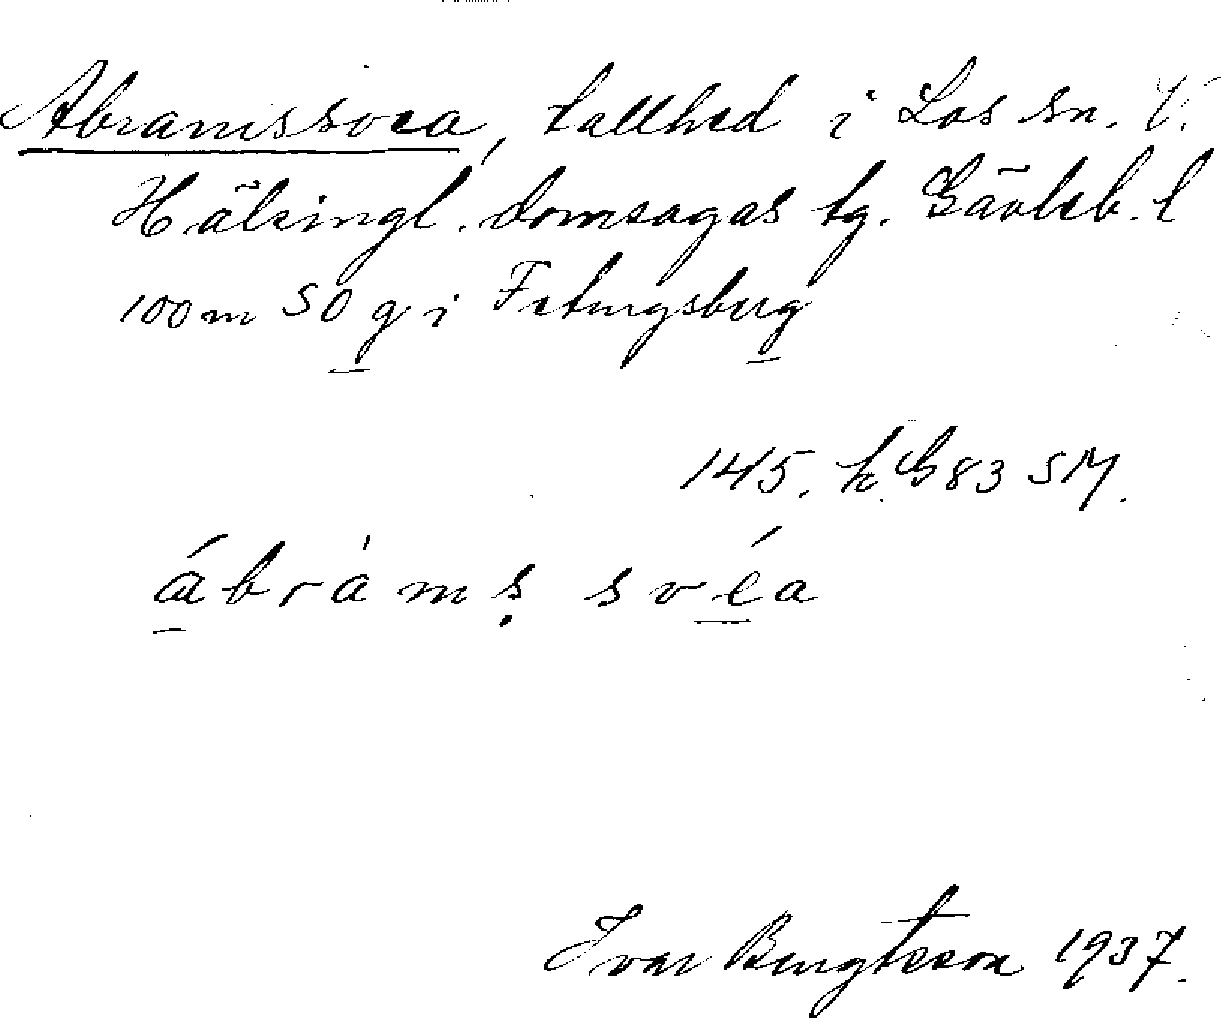 Abramssvea, tallhed i Los sn. V.
Hälsingl. domsagas tg. Gävleb. l
100 m SO g i Fetingsberg
145. k. G 83 SM.
ábràmṣ svéa
Ivar Bengtsson 1937.